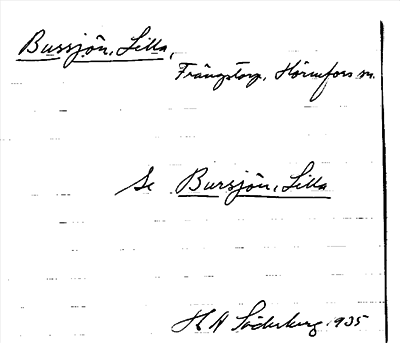 Bussjön, Lilla,
Frängstorp, Hörnefors sn.
Se Bursjön, Lilla
H A Söderberg 1935